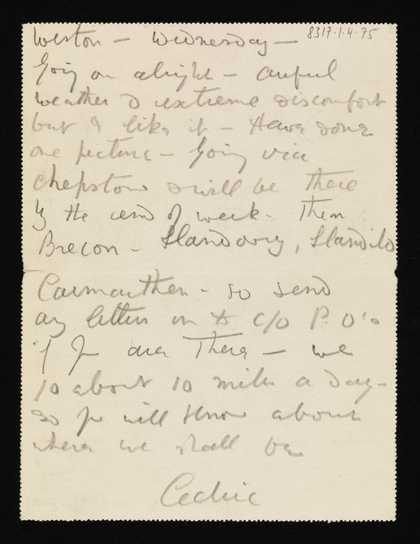 8317.1.4.75
Weston – Wednesday –
Going on alright – awful
weather & extreme discomfort
but I like it – Have done
one picture – Going via
Chepstow & will be there
by the end of week. Then
Brecon – Llandovery, Llandilo
Carmarthen – so send
any letters on to C/O P.O's
if you are There – we
10 about 10 miles a day –
so you will know about
where we shall be
Cedric